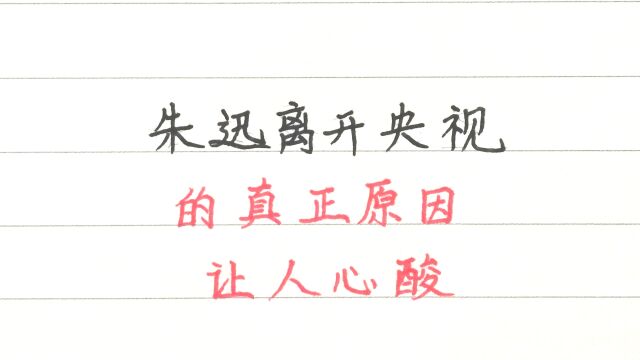 朱迅离开央视
的真正原因
让人心酸